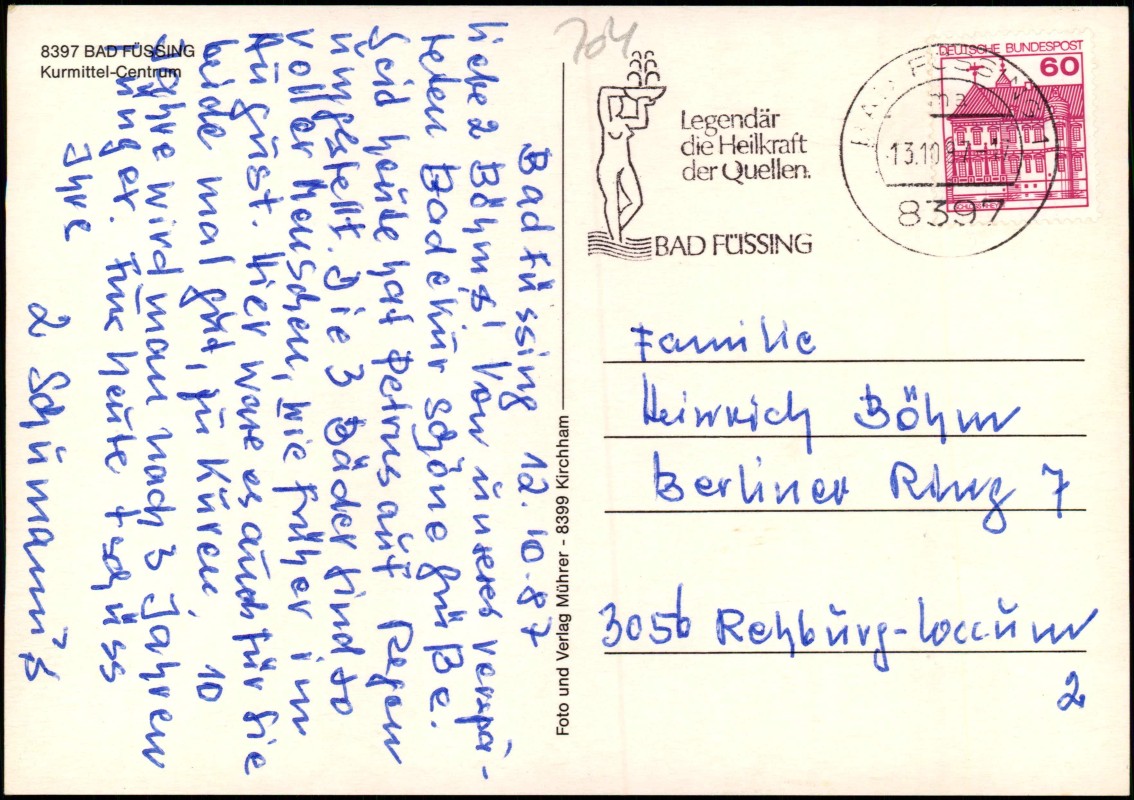 8397 BAD FÜSSING
Kurmittel-Centrum
Bad Füssing 12.10.87
liebe 2 Böhms! Von unserer verspä-
teten Badekur schöne Grüße.
Seid heute hat Petrus auf Regen
umgestellt. Die 3 Bäder sind so
voller Menschen, wie früher im
August. Hier wäre es auch für Sie
beide mal gut, zu Kuren. 10
Jahre wird man nach 3 Jahren
jünger. Für heute tschüss
Ihre
2 Schümann's
Foto und Verlag Mührer - 8399 Kirchham
704
Legendär
die Heilkraft
der Quellen.
BAD FÜSSING
DEUTSCHE BUNDESPOST
60
BAD FÜSSING 1
13.10.87
8397
Familie
Heinrich Böhm
Berliner Ring 7
3056 Rehburg-Loccum
2